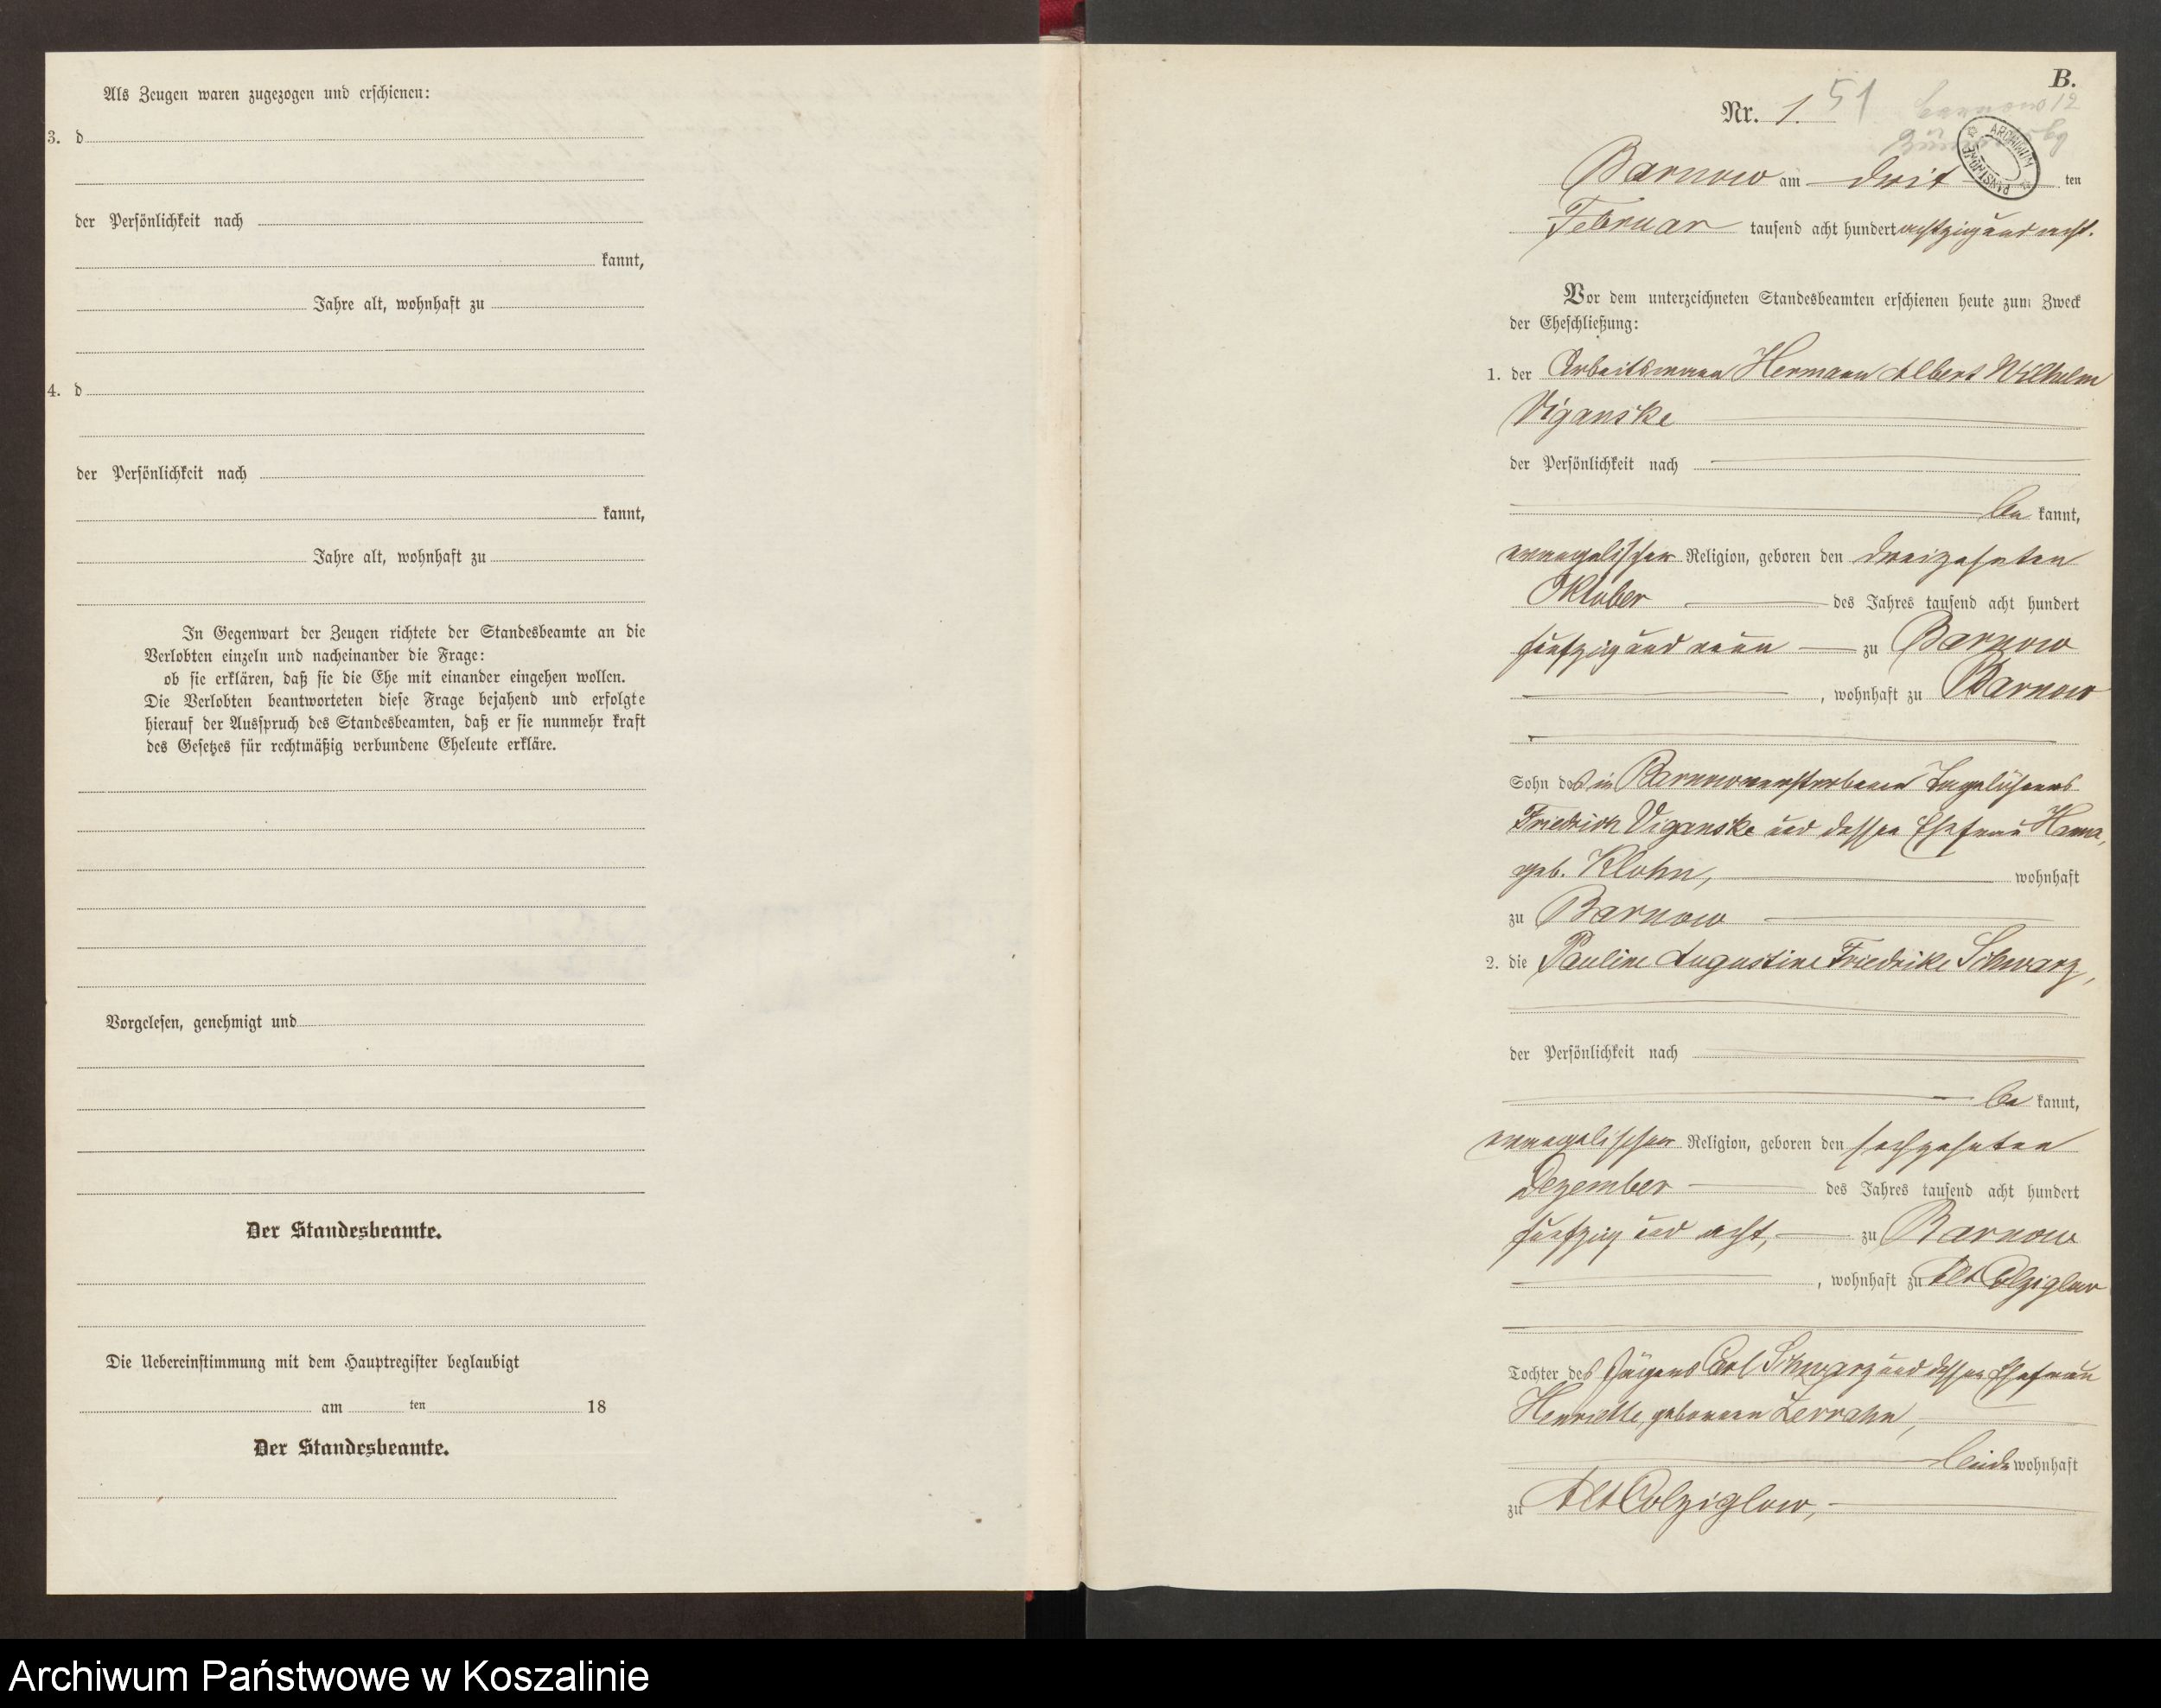 Als Zeugen waren zugezogen und erschienen:
3. d
der Persönlichkeit nach
kannt,
Jahre alt, wohnhaft zu
4. d
der Persönlichkeit nach
kannt,
Jahre alt, wohnhaft zu
In Gegenwart der Zeugen richtete der Standesbeamte an die
Verlobten einzeln und nacheinander die Frage:
ob sie erklären, daß sie die Ehe mit einander eingehen wollen.
Die Verlobten beantworteten diese Frage bejahend und erfolgte
hierauf der Ausspruch des Standesbeamten, daß er sie nunmehr kraft
des Gesetzes für rechtmäßig verbundene Eheleute erkläre.
Vorgelesen, genehmigt und
Der Standesbeamte.
Die Uebereinstimmung mit dem Hauptregister beglaubigt
am ten 18
Der Standesbeamte.
B.
Nr. 1. 51
Barnow 12
ARCHIWUM PAŃSTWOWE
Barnow am drit ten
Februar tausend acht hundert achtzig und acht.
Vor dem unterzeichneten Standesbeamten erschienen heute zum Zweck
der Eheschließung:
1. der Arbeitsmann Hermann Albert Wilhelm
Viganske
der Persönlichkeit nach
be kannt,
evangelischer Religion, geboren den dreizehnten
Oktober des Jahres tausend acht hundert
fünfzig und neun zu Barnow
, wohnhaft zu Barnow
Sohn des in Barnow verstorbenen Tagelöhners
Friedrich Viganske und dessen Ehefrau Hanna,
geb. Klohn, wohnhaft
zu Barnow
2. die Pauline Augustine Friedrike Schwarz,
der Persönlichkeit nach
be kannt,
evangelischer Religion, geboren den sechzehnten
Dezember des Jahres tausend acht hundert
fünfzig und acht, zu Barnow
, wohnhaft zu Alt Colziglow
Tochter des Jägers Carl Schwarz und dessen Ehefrau
Henriette, geborenen Zerrahn,
beide wohnhaft
zu Alt Colziglow,
Archiwum Państwowe w Koszalinie